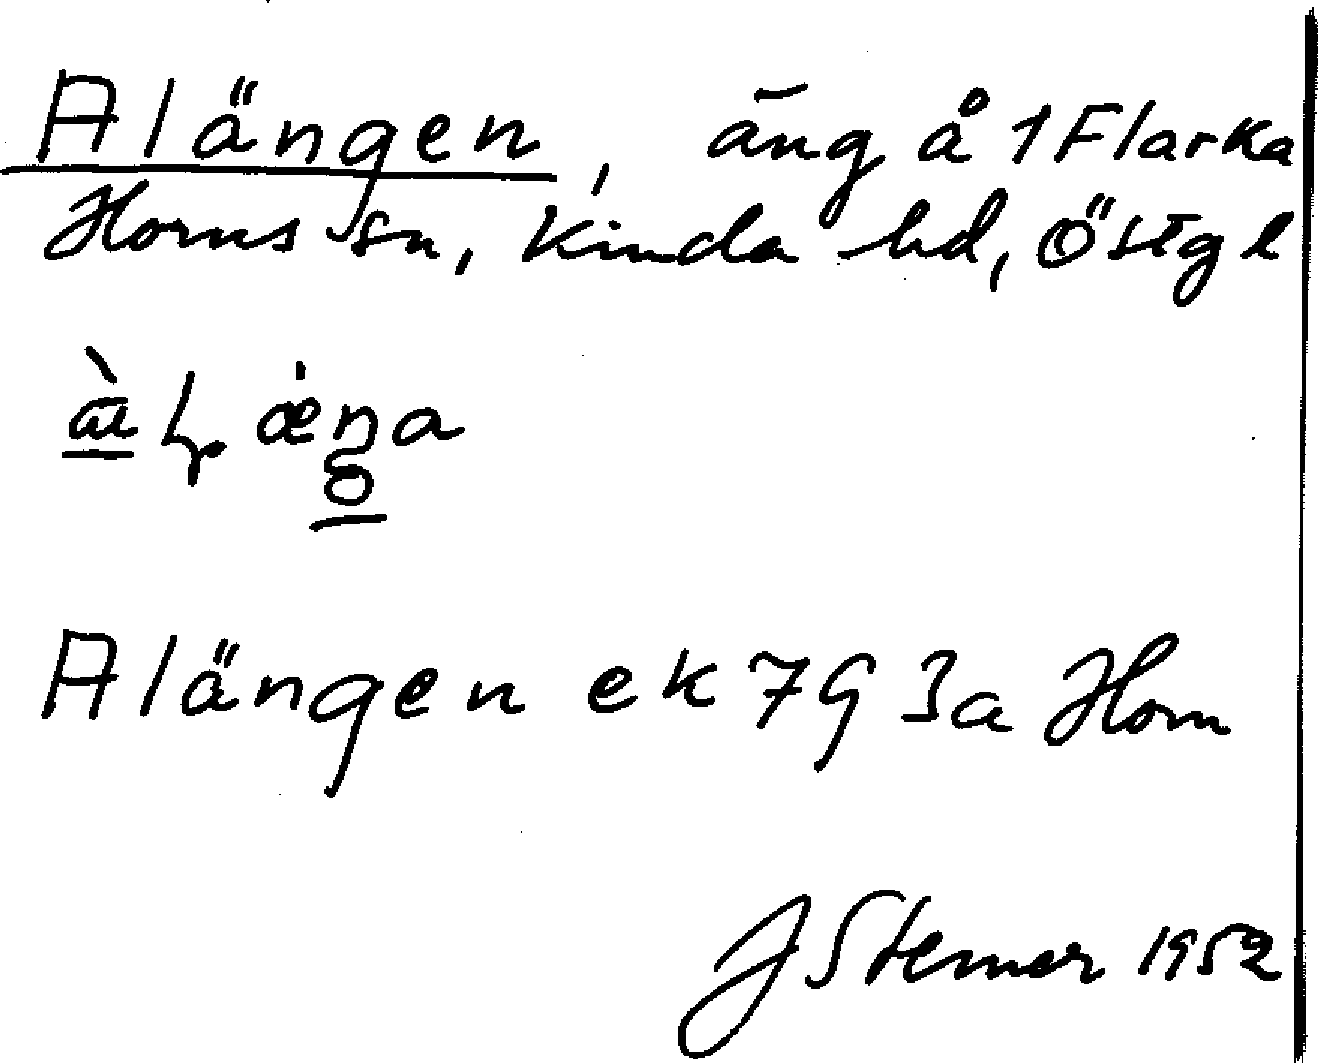 Alängen, äng å 1 Flarka
Horns sn, Kinda hd, Östgl
Alängen ek 7G 3a Horn
J Stemer 1952